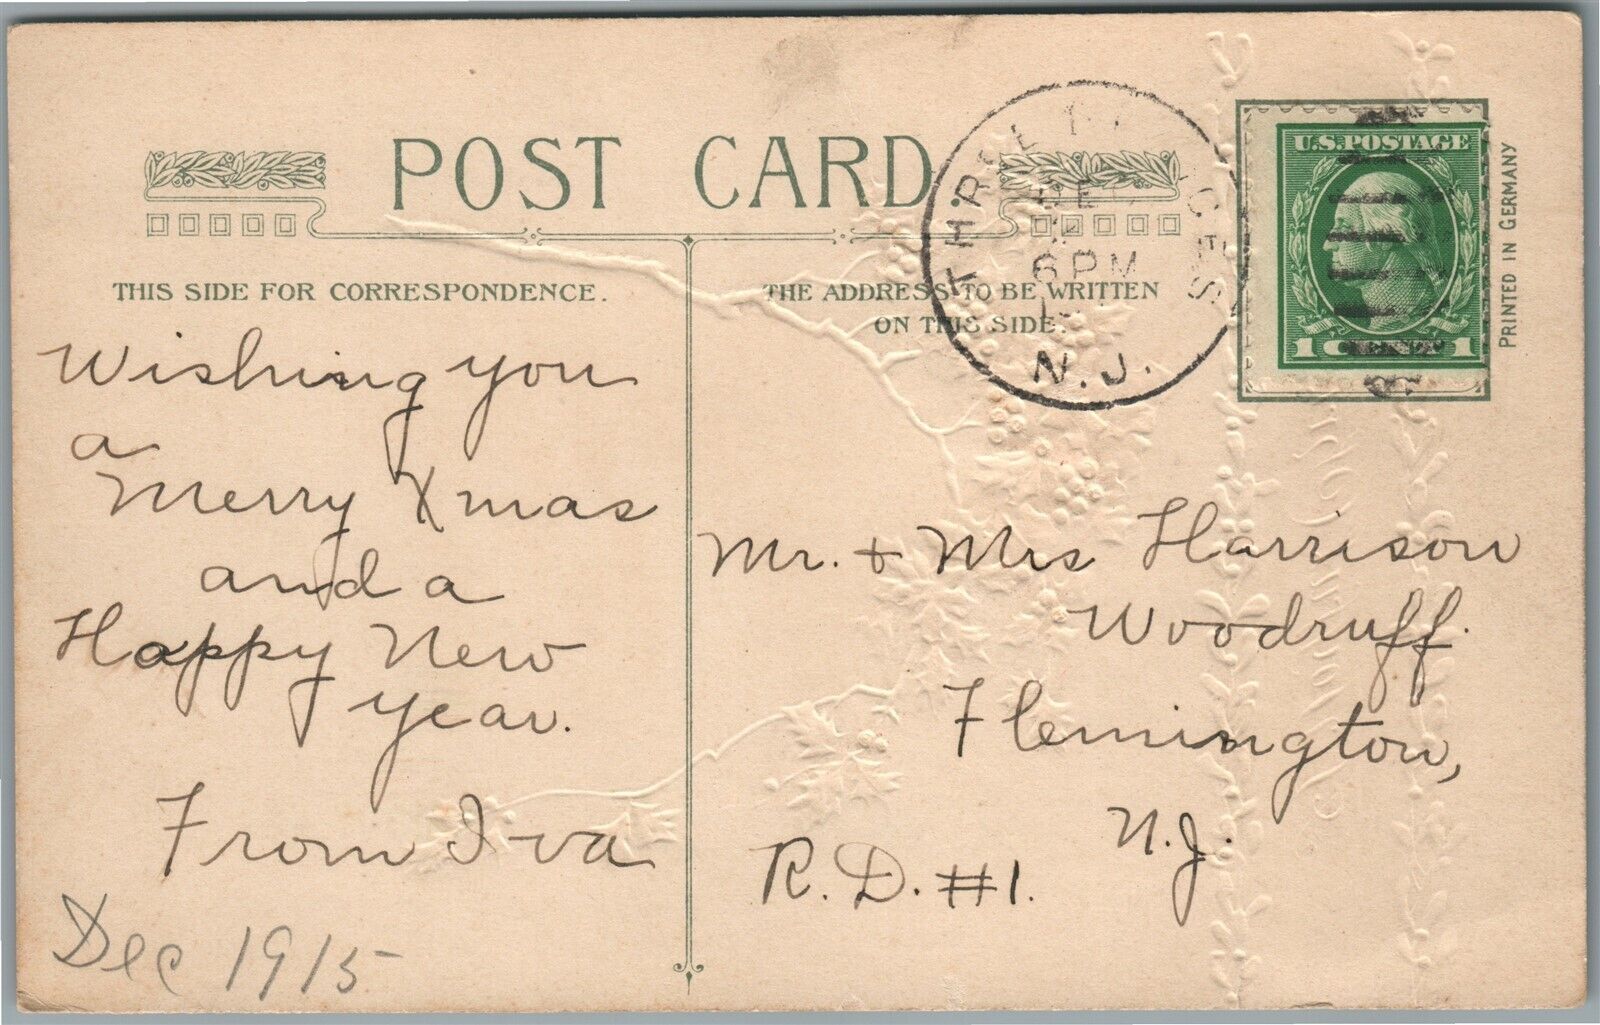 POST CARD
THIS SIDE FOR CORRESPONDENCE.
THE ADDRESS TO BE WRITTEN
ON THIS SIDE.
U.S. POSTAGE
1 CENT 1
PRINTED IN GERMANY
THREE
6 PM
N.J.
Wishing you
a
Merry Xmas
and a
Happy New
year.
From Iva
Dec 1915
Mr. + Mrs Harrison
Woodruff.
Flemington,
N.J.
R.D. #1.